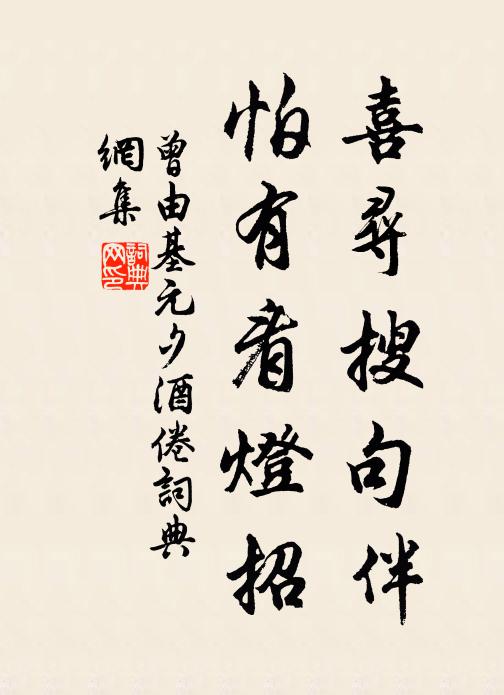 喜尋搜句伴
怕有看燈招
曾由基元夕酒倦詞典
網集
詞典
网印